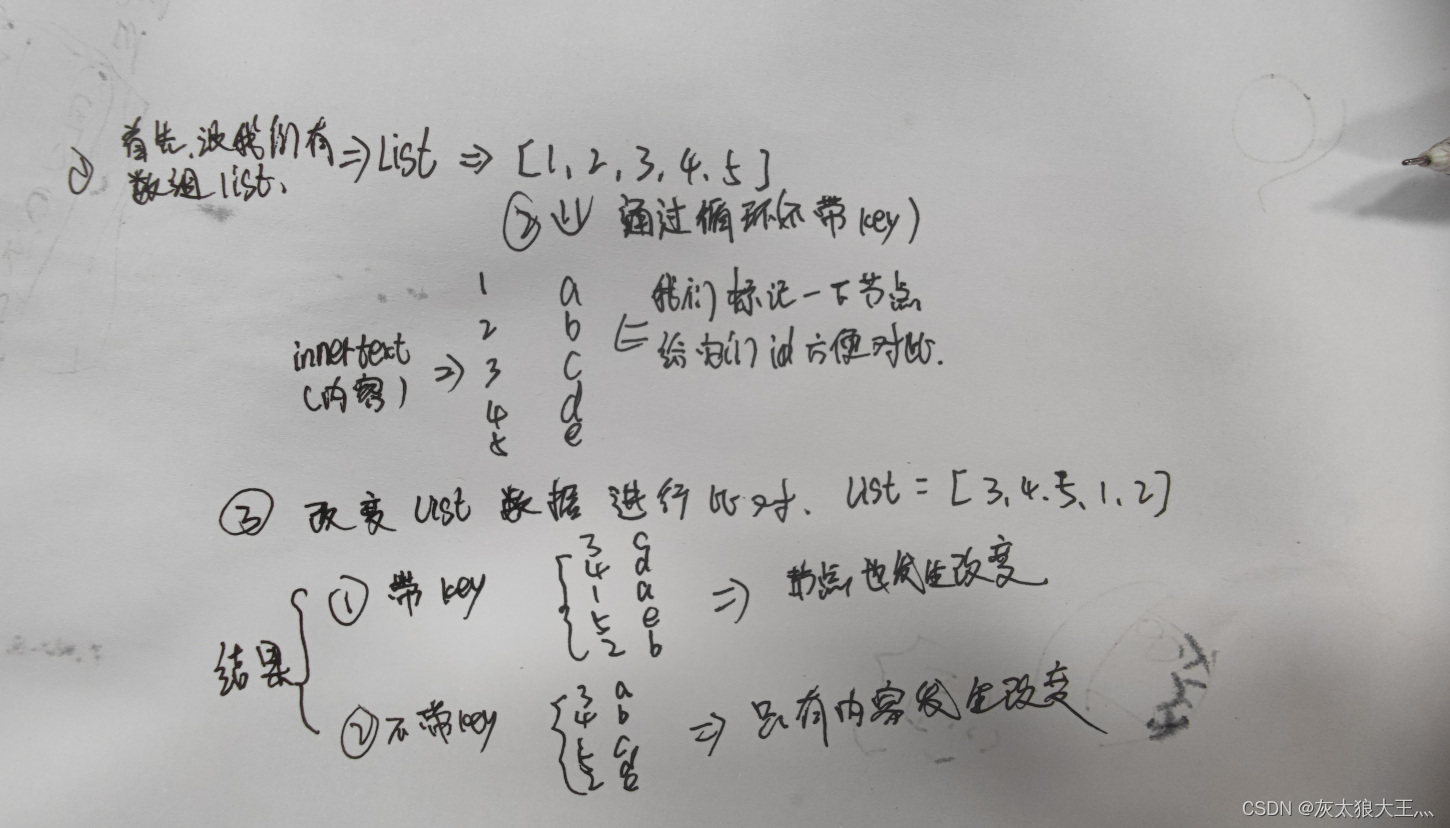 ① 首先,设我们有数组list, => List => [1, 2, 3, 4, 5]
② 通过循环(不带key)
1 a
2 b
3 c
4 d
5 e
innertext
(内容) =>
我们标记一下节点
给它们id方便对比.
③ 改变List数据进行比对. List = [3, 4, 5, 1, 2]
结果
① 带key
3 c
4 d
1 a
5 e
2 b
=> 节点也发生改变
② 不带key
3 a
4 b
5 c
=> 只有内容发生改变
CSDN @灰太狼大王灬